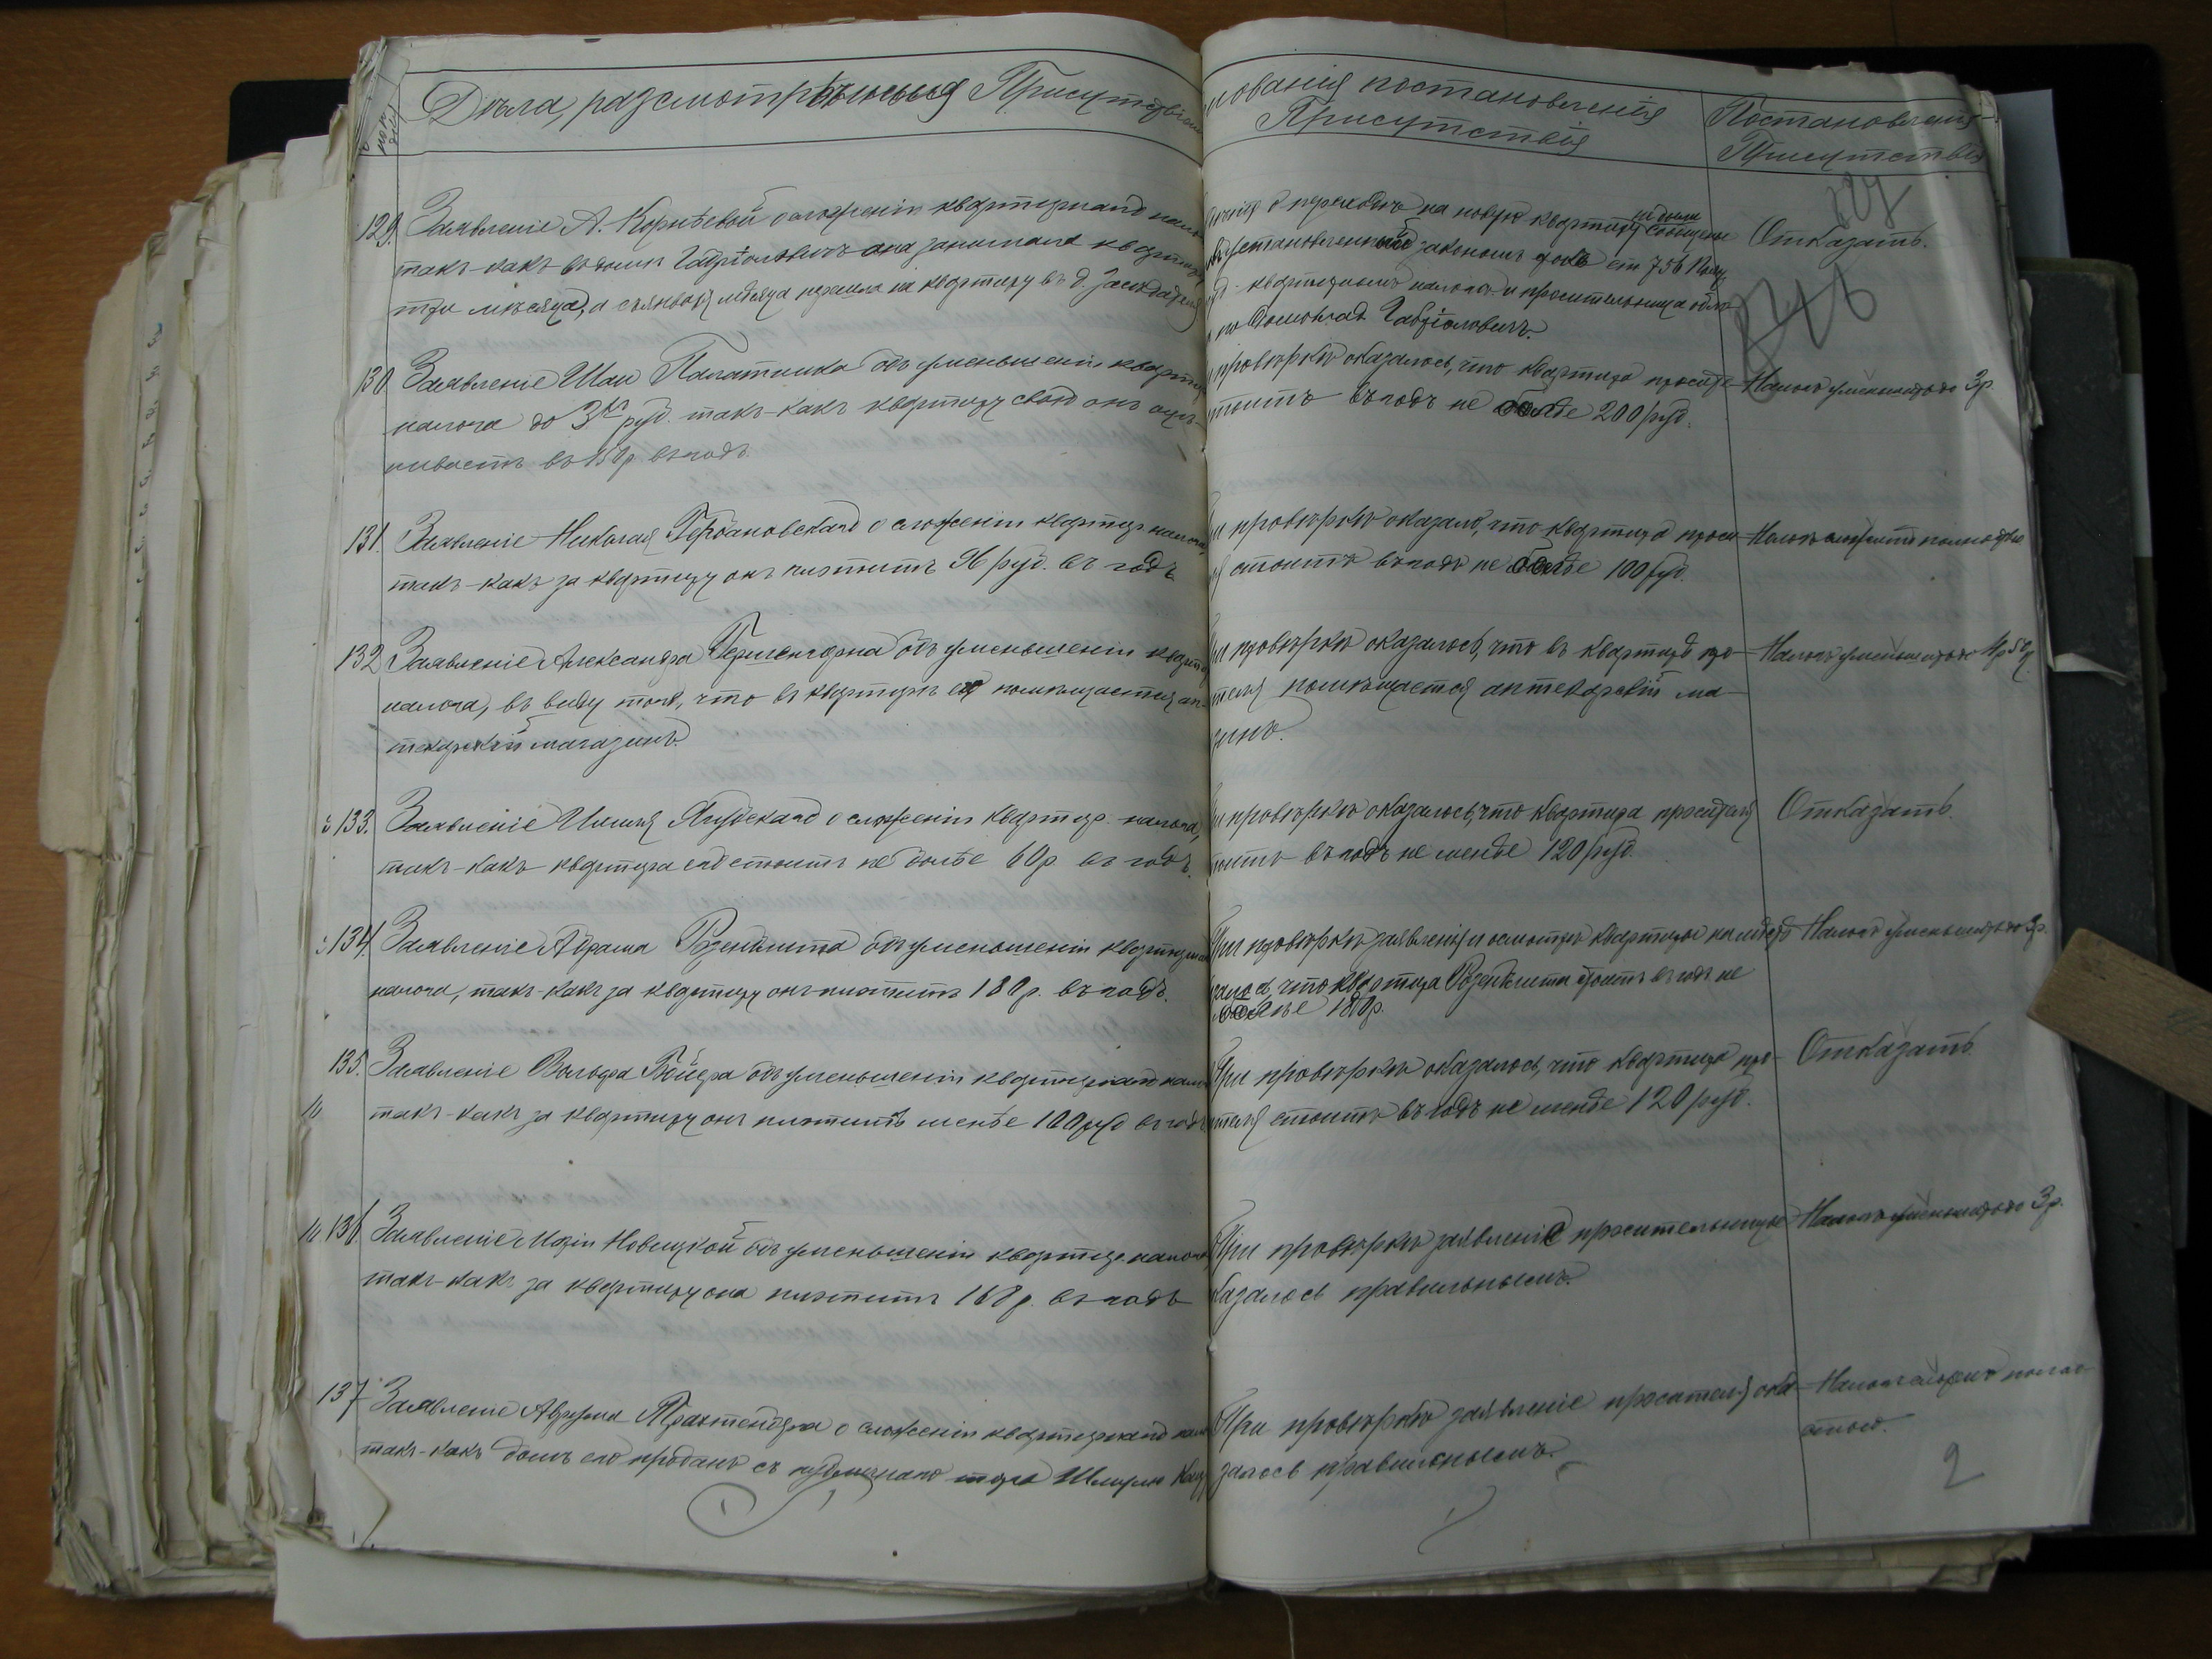 №№ по порядку
Дѣла, разсмотрѣнныя Присутствіем
нованія постановленія
Присутствія
Постановленія
Присутствія
227
129. Заявленіе А. Корнѣевой о сложеніи квартирнаго нало
такъ-какъ въ домѣ Габріоловичъ она занимала квартиру
три мѣсяца, а съ января мѣсяца перешла на квартиру въ д.
о переходѣ на новую квартиру не было сообщено
въ установленный закономъ срокъ ст. 7 56
квартирномъ налогѣ и просительница
по Габріоловичъ.
Отказать.
130. Заявленіе Шаи Палатника объ уменьшеніи кварти
налога до 3хъ руб. такъ-какъ квартиру свою онъ оцѣ-
ниваетъ въ 150 р. въ годъ.
провѣркѣ оказалось, что квартира просите
тоитъ въ годъ не болѣе 200 руб.
Налогъ уменьшить до 3 р.
131. Заявленіе Николая Гербановскаго о сложеніи квартир. налога
такъ-какъ за квартиру онъ платитъ 96 руб. въ годъ
и провѣркѣ оказало, что квартира проси
я стоитъ въ годъ не болѣе 100 руб.
Налогъ сложить полностью
132 Заявленіе Александра Герценгорна объ уменьшеніи кварти
налога, въ виду того, что въ квартирѣ его помѣщается ап-
текарскій магазинъ.
и провѣркѣ оказалось, что въ квартирѣ про-
ителя помѣщается аптекарскій ма-
зинъ.
Налогъ уменьшить до 4 р 50 к
133. Заявленіе Ямпольскаго о сложеніи квартир. налога,
такъ-какъ квартира его стоитъ не болѣе 60 р. въ годъ.
и провѣркѣ оказалось, что квартира просителя
тоитъ въ годъ не менѣе 120 руб.
Отказать.
134. Заявленіе Абрама Розенблита объ уменьшеніи квартирна
налога, такъ-какъ за квартиру онъ платитъ 180 р. въ годъ.
При провѣркѣ заявленія и осмотрѣ квартиры на мѣстѣ
залось, что квартира Розенблита стоитъ въ годъ не
болѣе 180 р.
Налогъ уменьшить до 3 р.
135. Заявленіе Вольфа Бойера объ уменьшеніи квартирнаго нало
такъ-какъ за квартиру онъ платитъ менѣе 100 руб въ годъ
При провѣркѣ оказалось, что квартира про-
ителя стоитъ въ годъ не менѣе 120 руб.
Отказать.
136. Заявленіе Маріи Новицкой объ уменьшеніи квартир. налога
такъ-какъ за квартиру она платитъ 168 р. въ годъ
При провѣркѣ заявленіе просительницы
казалось правильнымъ.
Налогъ уменьшить до 3 р.
137 Заявленіе Аврума Трахтенберга о сложеніи квартирнаго нало
такъ-какъ домъ его проданъ съ публичнаго торга Шмулю
При провѣркѣ заявленіе просителя ока-
залось правильнымъ.
Налогъ сложить полно-
стью.
2